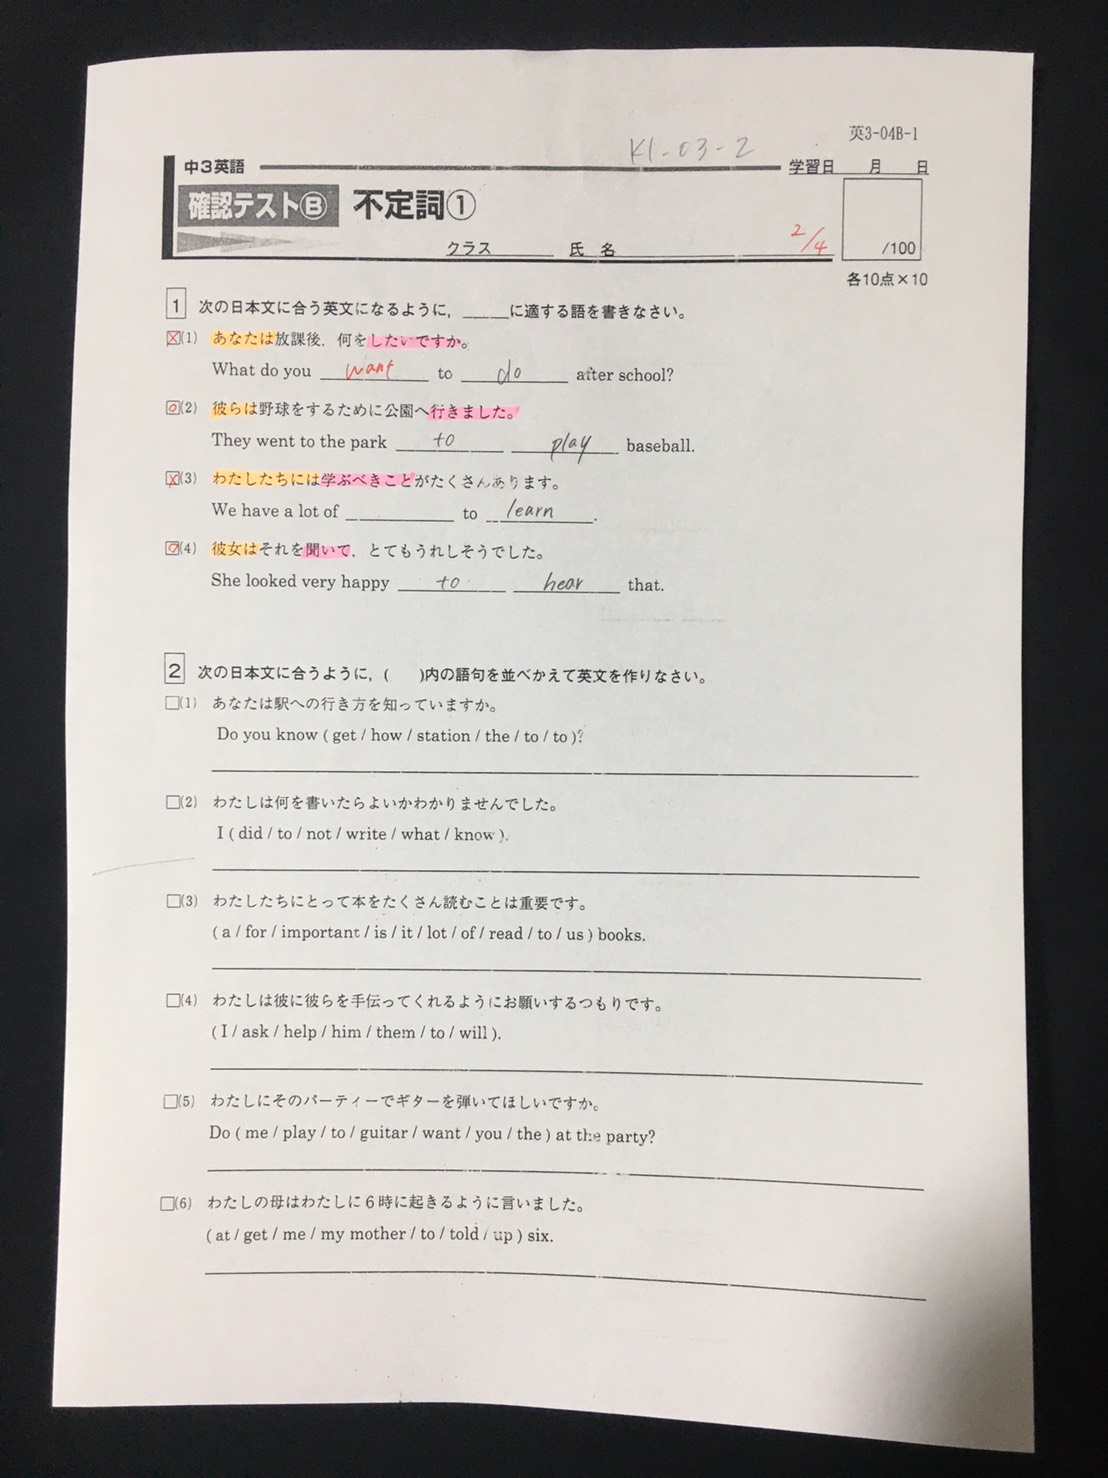 K1-03-2
英3-04B-1
中3英語
学習日 月 日
確認テストⒷ 不定詞①
クラス 氏名
2/4
/100
各10点×10
1 次の日本文に合う英文になるように，____に適する語を書きなさい。
(1) あなたは放課後，何をしたいですか。
What do you want to do after school?
(2) 彼らは野球をするために公園へ行きました。
They went to the park to play baseball.
(3) わたしたちには学ぶべきことがたくさんあります。
We have a lot of ____ to learn.
(4) 彼女はそれを聞いて，とてもうれしそうでした。
She looked very happy to hear that.
2 次の日本文に合うように，( )内の語句を並べかえて英文を作りなさい。
(1) あなたは駅への行き方を知っていますか。
Do you know ( get / how / station / the / to / to )?
(2) わたしは何を書いたらよいかわかりませんでした。
I ( did / to / not / write / what / know ).
(3) わたしたちにとって本をたくさん読むことは重要です。
( a / for / important / is / it / lot / of / read / to / us ) books.
(4) わたしは彼に彼らを手伝ってくれるようにお願いするつもりです。
( I / ask / help / him / them / to / will ).
(5) わたしにそのパーティーでギターを弾いてほしいですか。
Do ( me / play / to / guitar / want / you / the ) at the party?
(6) わたしの母はわたしに6時に起きるように言いました。
( at / get / me / my mother / to / told / up ) six.